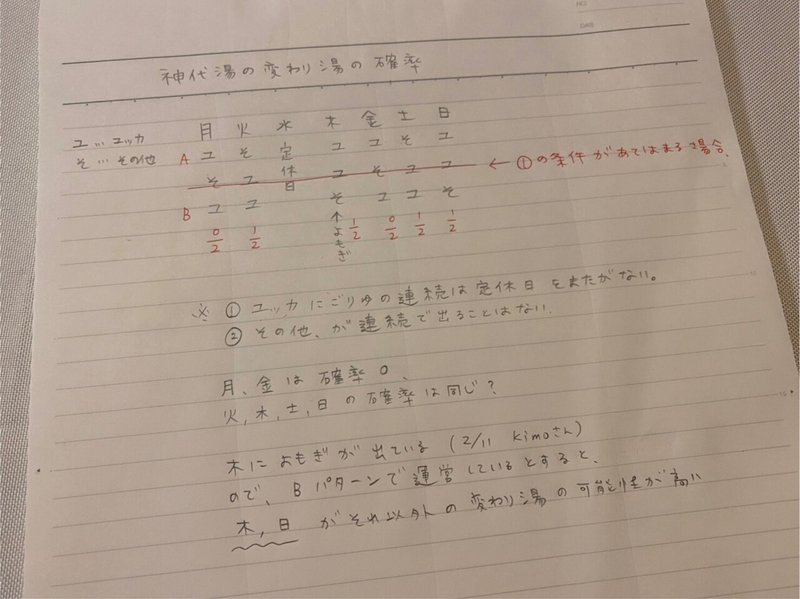 NO.
DATE
神代湯の変わり湯の確率
ユ…ユッカ
そ…その他
月 火 水 木 金 土 日
A ユ そ 定 ユ ユ そ ユ
そ ユ 休 ユ そ ユ ユ ← ①の条件があてはまる場合、
日
B ユ ユ そ ユ ユ そ
0/2 1/2 ↑よもぎ 1/2 0/2 1/2 1/2
※ ① ユッカにごりゆの連続は定休日をまたがない。
② その他、が連続で出ることはない.
月、金は確率0、
火,木,土,日の確率は同じ?
木によもぎが出ている (2/11 kimoさん)
ので、Bパターンで運営しているとすると、
木,日がそれ以外の変わり湯の可能性が高い